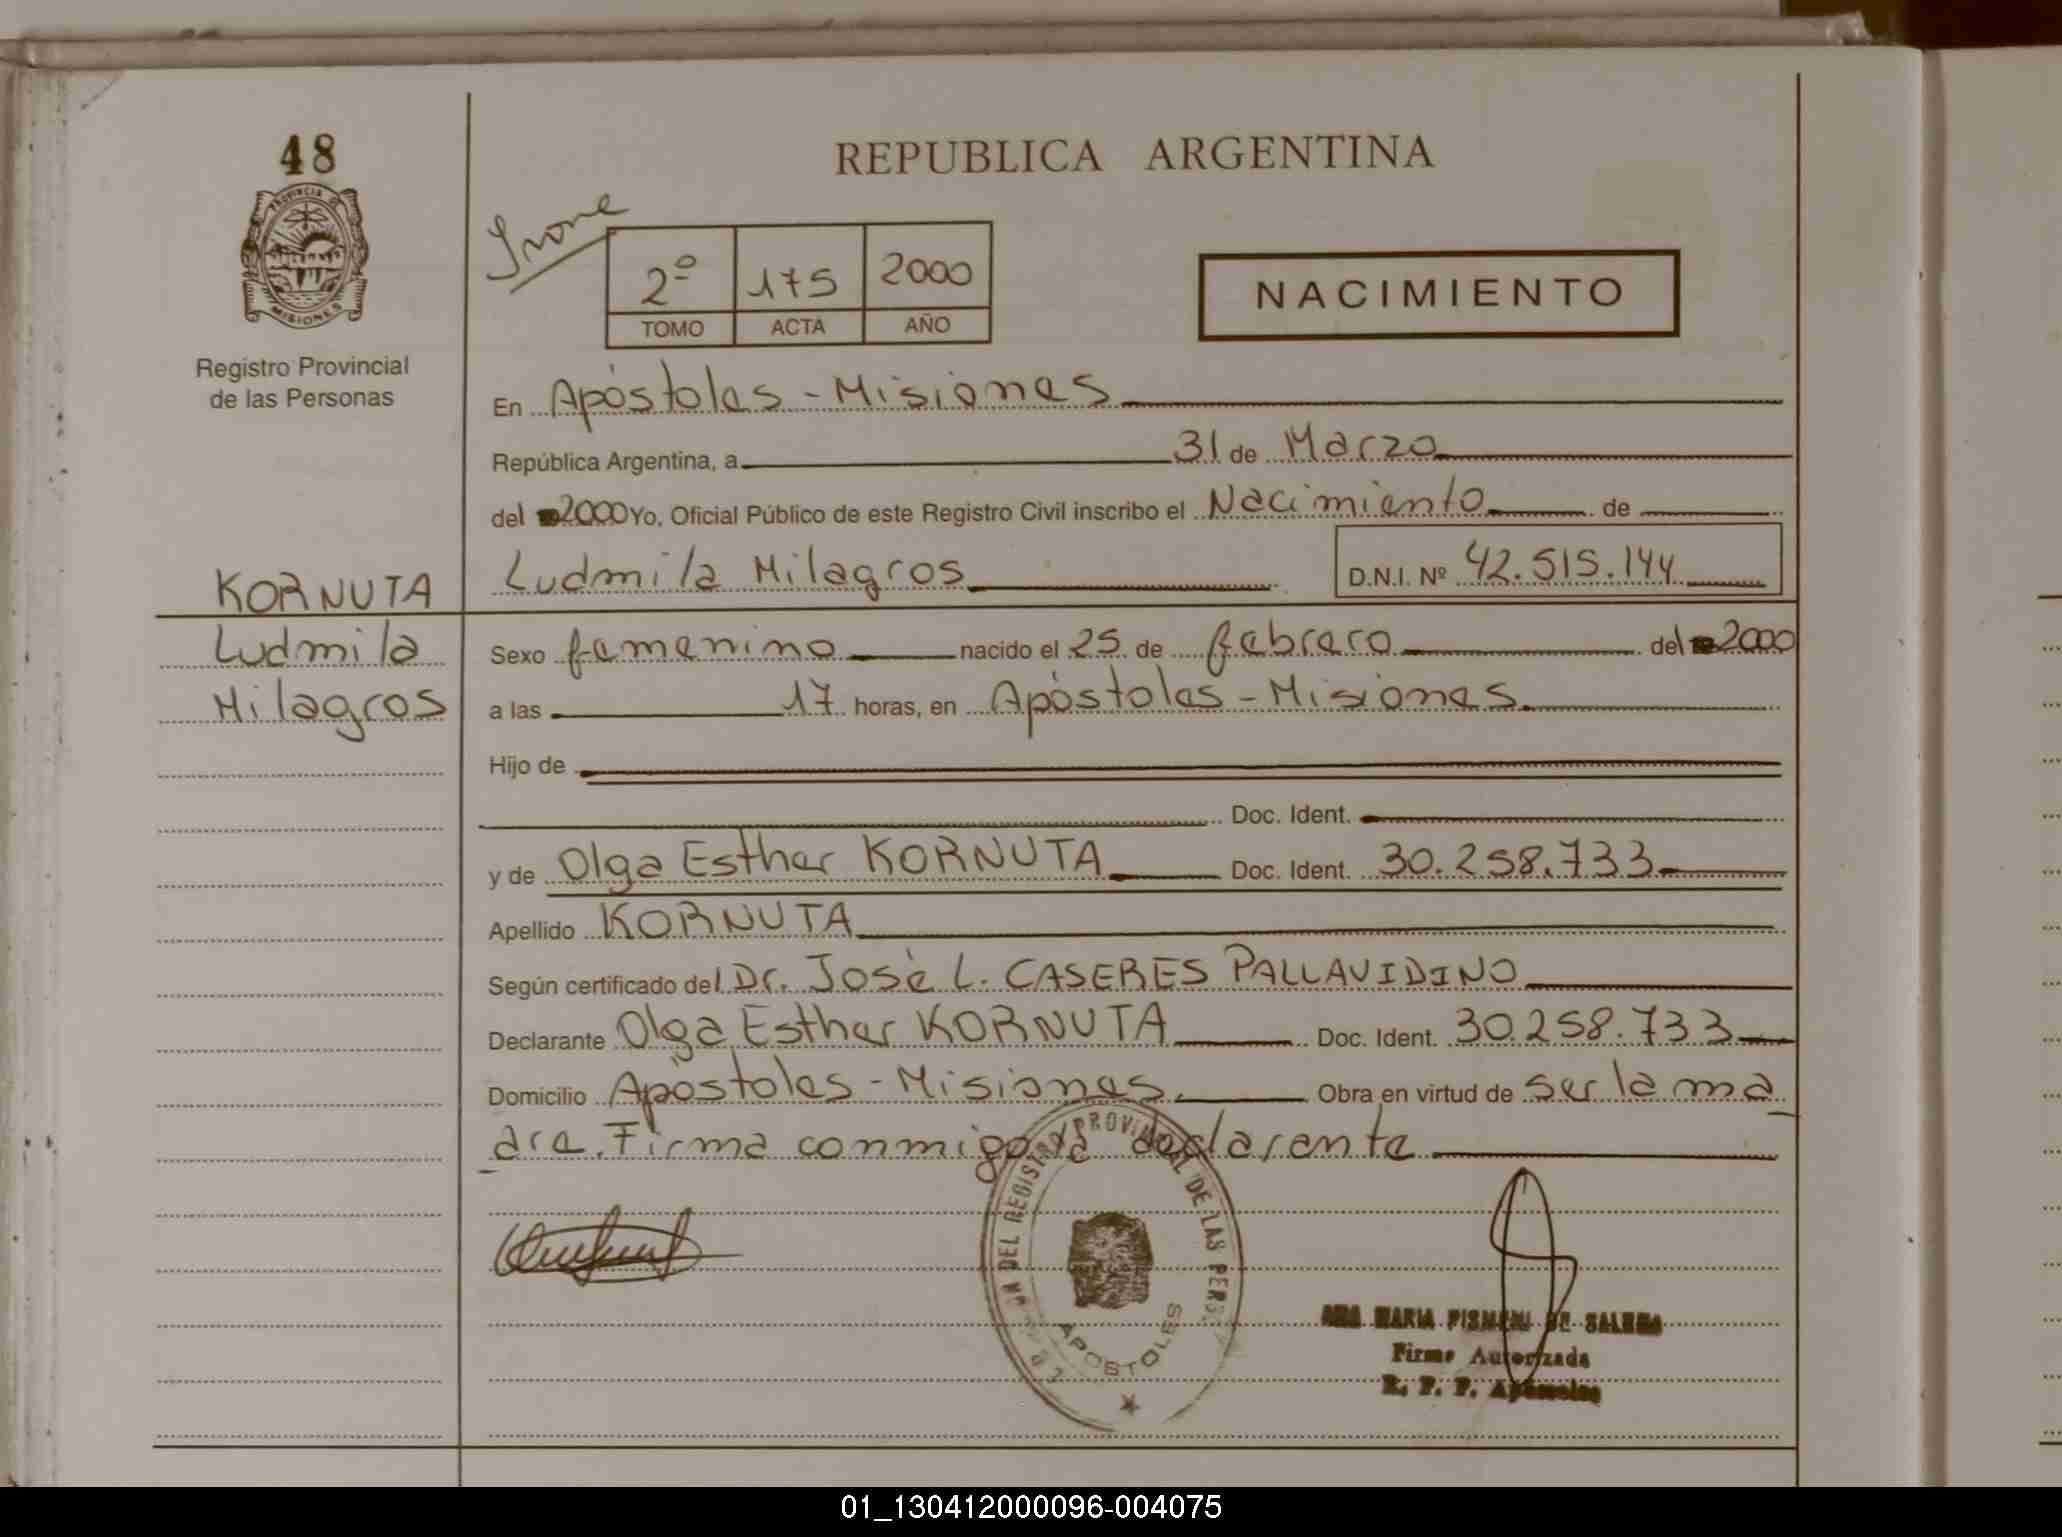 48
PROVINCIA DE
MISIONES
Registro Provincial
de las Personas
KORNUTA
Ludmila
Milagros
REPUBLICA ARGENTINA
2º 175 2000
TOMO ACTA AÑO
NACIMIENTO
En Apóstoles - Misiones
República Argentina, a 31 de Marzo
del 2000 Yo, Oficial Público de este Registro Civil inscribo el Nacimiento de
Ludmila Milagros D.N.I. Nº 42.515.144
Sexo femenino nacido el 25 de febrero del 2000
a las 17 horas, en Apóstoles - Misiones.
Hijo de
Doc. Ident.
y de Olga Esther KORNUTA Doc. Ident. 30.258.733
Apellido KORNUTA
Según certificado del Dr. José L. CASERES PALLAVIDINO
Declarante Olga Esther KORNUTA Doc. Ident. 30.258.733
Domicilio Apóstoles - Misiones. Obra en virtud de ser la ma
dre. Firma conmigo la declarante
DEL REGISTRO PROVINCIAL DE LAS PERS
APOSTOLES
MARIA DE
Firma Autorizada
R. P. P. Apóstoles
01_130412000096-004075